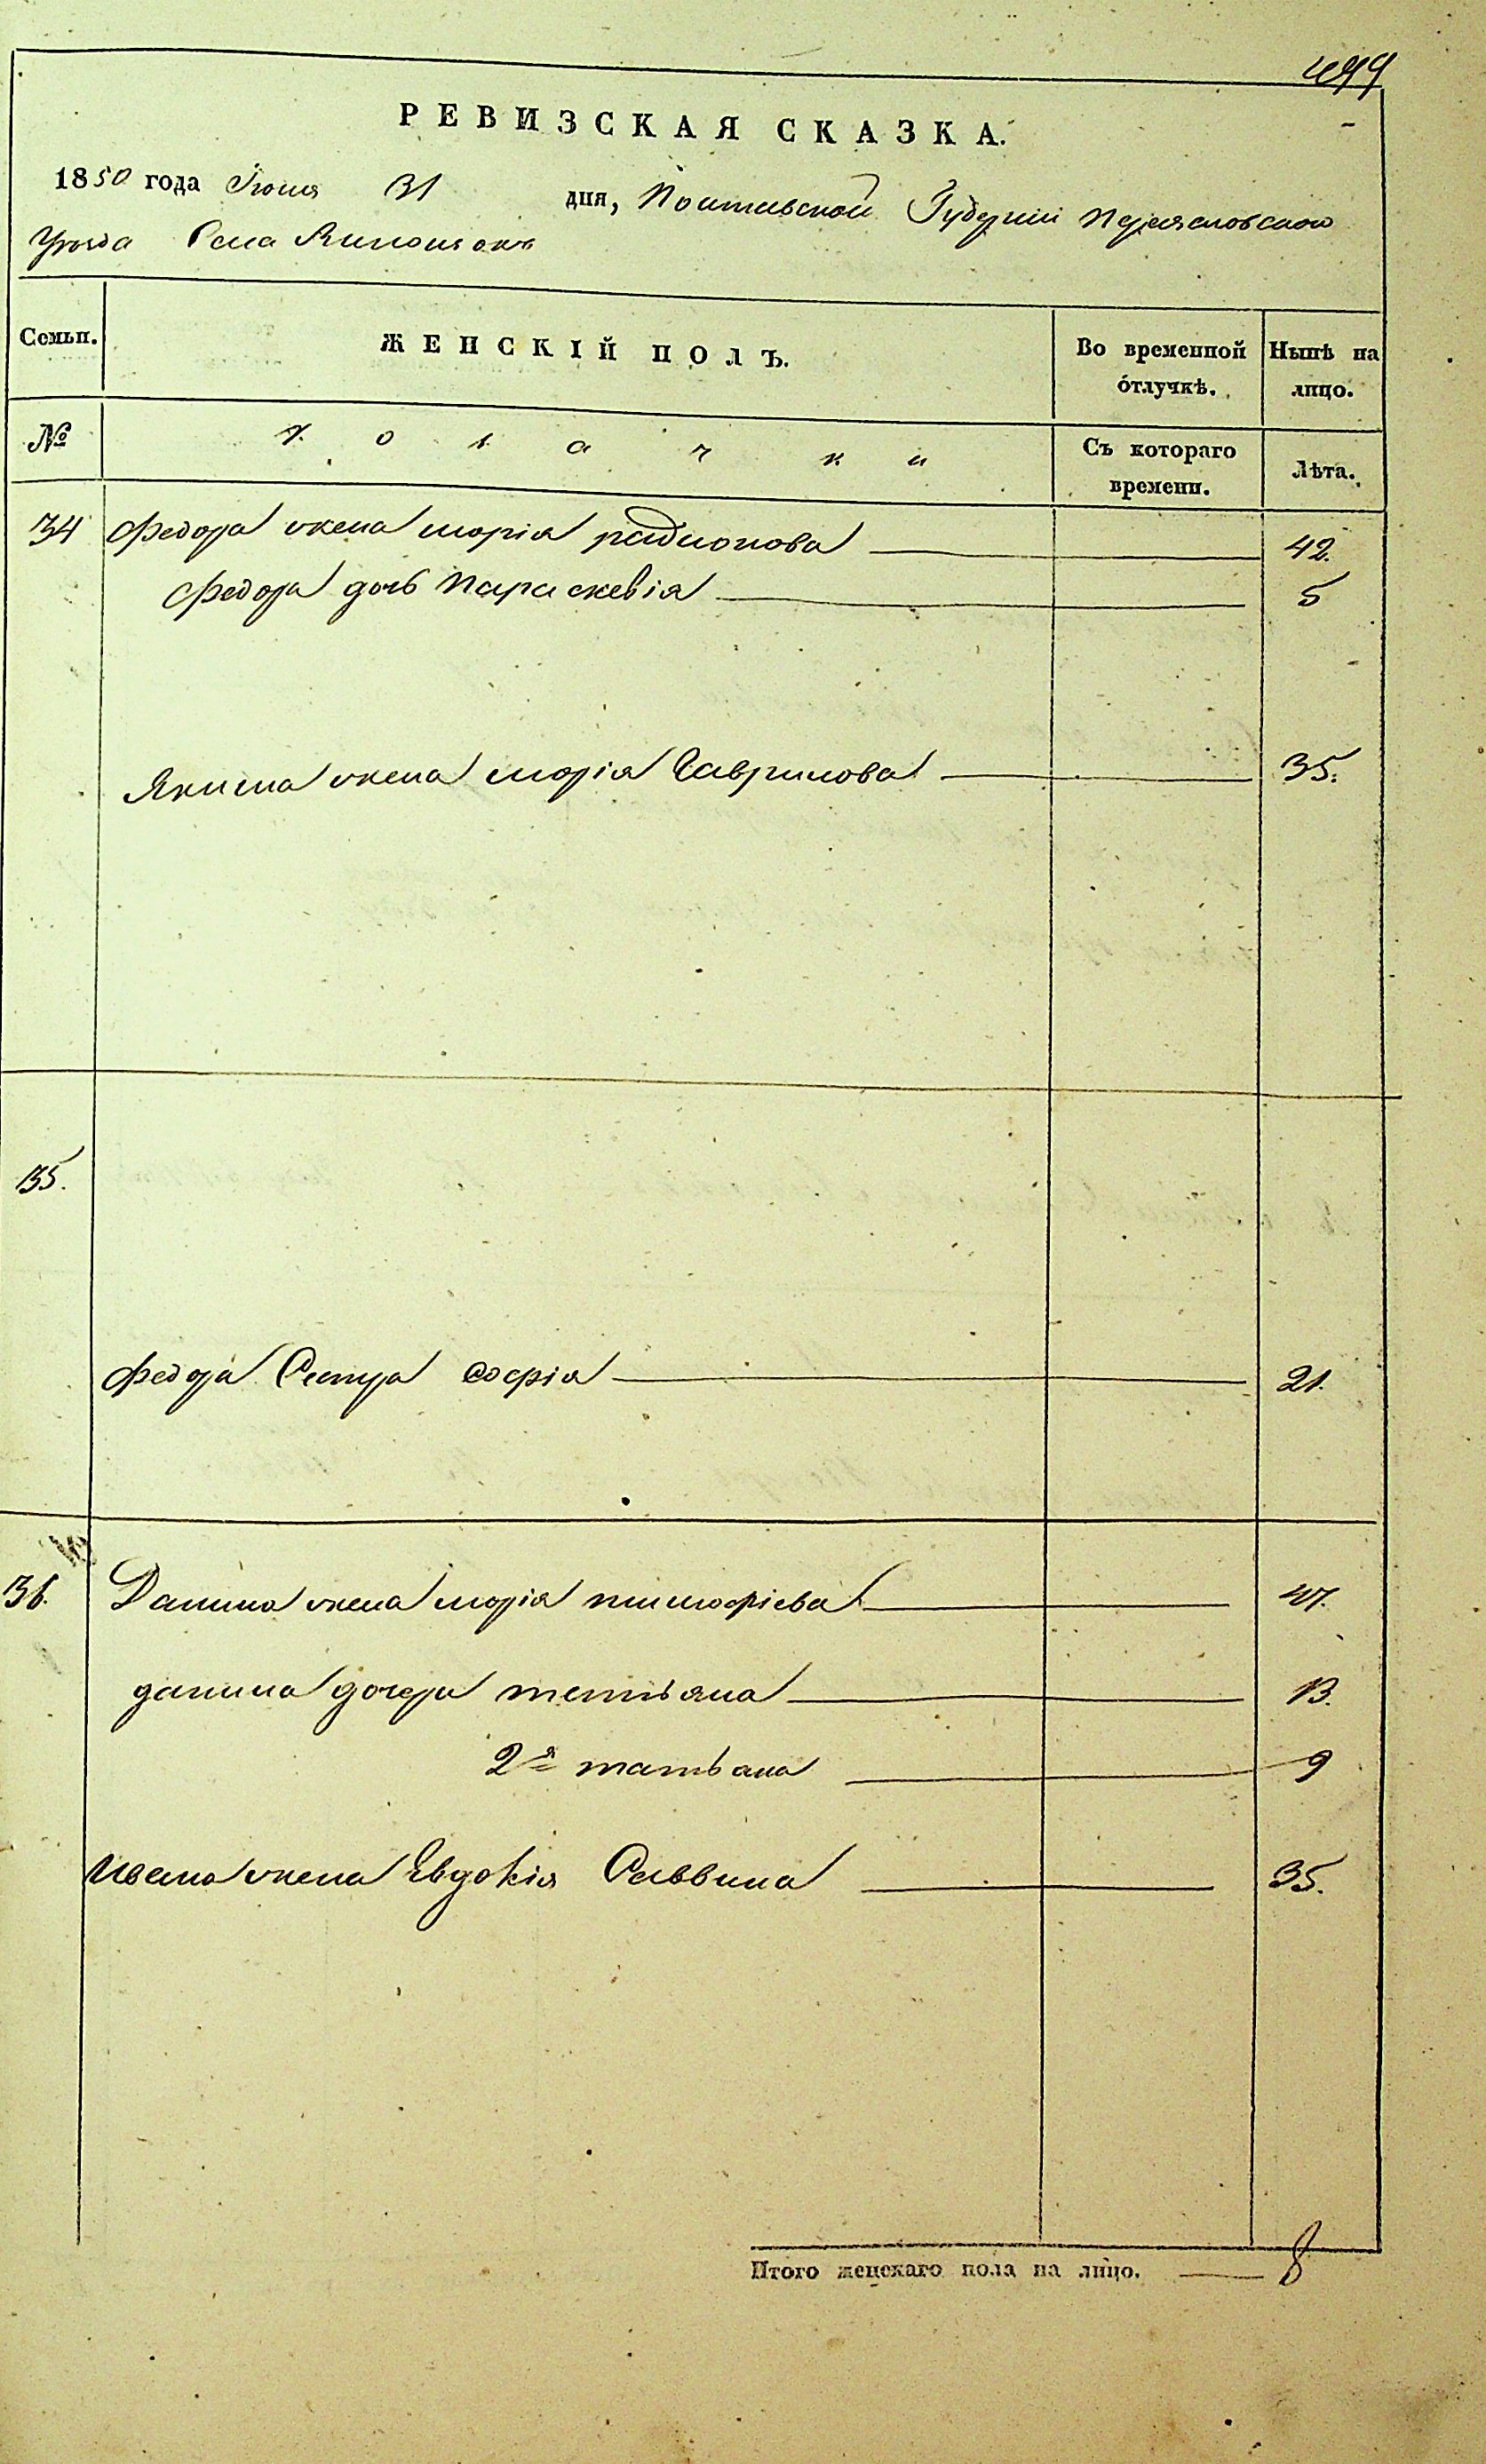 499
РЕВИЗСКАЯ СКАЗКА.
1850 года Июня 31 дня, Полтавской Губернии Переяславского
Уезда Села
Семьи. ЖЕНСКІЙ ПОЛЪ. Во временной отлучкѣ. Нынѣ на лицо.
№ Козачки Съ котораго времени. Лѣта.
34 Федора жена Марія Радионова 42.
Федора дочь Параскевія 5
Якима жена Марія Гаврилова 35.
35.
Федора Сестра Софія 21.
36. Данила жена Марія Тимофіева 47.
Данила дочери Татьяна 13.
2я Татьяна 9
Ивана жена Евдокія Саввина 35.
Итого женскаго пола на лицо. 8